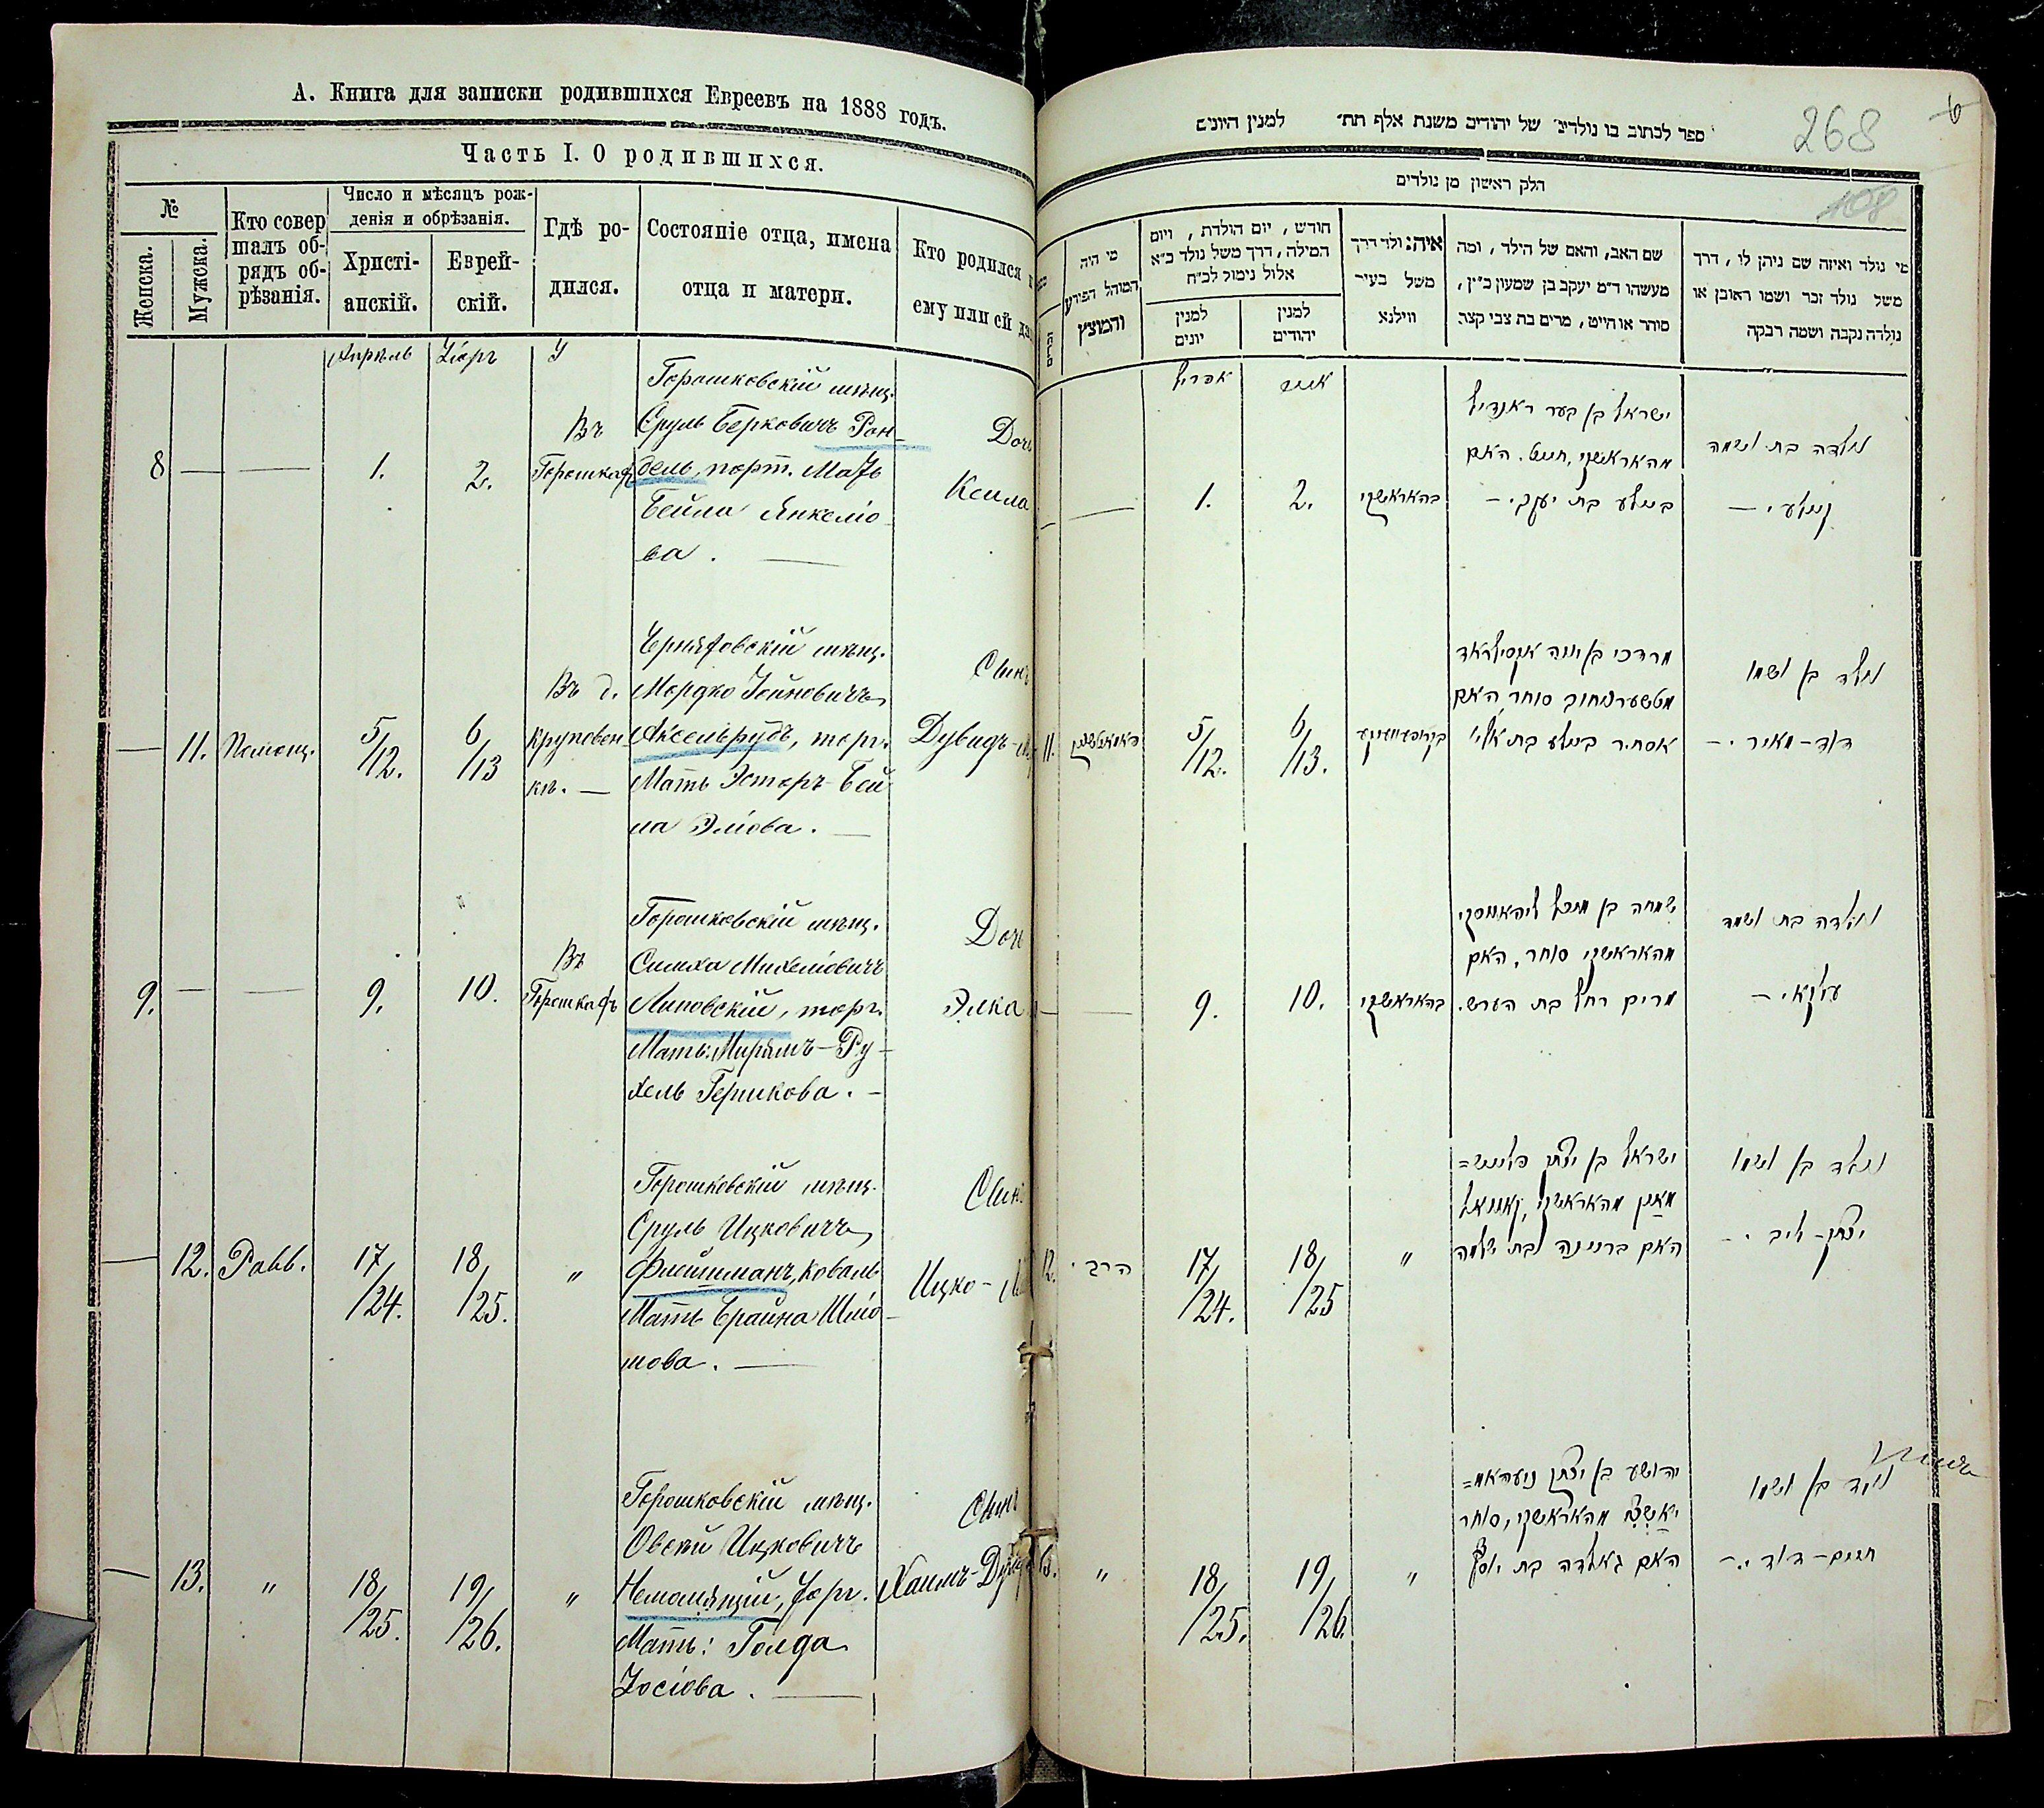 А. Книга для записки родившихся Евреевъ на 1888 годъ.
Часть I. О родившихся.
№
Женска.
Мужска.
Кто совер
шалъ об-
рядъ об-
рѣзанія.
Число и мѣсяцъ рож-
денія и обрѣзанія.
Христі-
анскій.
Еврей-
скій.
Гдѣ ро-
дился.
Состояніе отца, имена
отца и матери.
Кто родился
ему или ей
Апрѣль
Іюръ
8
1.
2.
Въ
Горошкахъ
Горошковскій мѣщ.
Сруль Берковичъ Рон-
дель, порт. Мать
Бейла Янкеліо-
ва.
Дочь
Ксила
11.
Помощ.
5/12.
6/13
Въ д.
Круповен-
кѣ.
Черняховскій мѣщ.
Мордко Іойновичъ
Аксельрудъ, торг.
Мать Эстеръ-Бей
ла Эліова.
Сынъ
Дувидъ-
9.
9.
10.
Въ
Горошкахъ
Горошковскій мѣщ.
Симха Михеліовичъ
Липовскій, торг.
Мать: Мирямъ-Ру-
хель Гершкова.
Дочь
Элка
12.
Равв.
17/24.
18/25.
"
Горошковскій мѣщ.
Сруль Ицковичъ
Флейшманъ, коваль
Мать Брайна Шліо-
мова.
Сынъ
Ицко-
13.
"
18/25.
19/26.
"
Горошковскій мѣщ.
Овсій Ицковичъ
Немолящій, торг.
Мать: Голда
Іосіова.
Сынъ
Хаимъ-Дувидъ
ספר לכתוב בו נולדים של יהודים משנת אלף תת׳ למנין היונים
268
108
חלק ראשון מן נולדים
מי היה
המוהל הפורע
והמוצץ
חודש, יום הולדת, ויום
המילה, דרך משל נולד כ״א
אלול נימול לכ״ח
למנין
יונים
למנין
יהודים
איה נולד דרך
משל בעיר
ווילנא
שם האב, והאם של הילד, ומה
מעשהו ד״מ יעקב בן שמעון כ״ץ,
סוחר או חייט, מרים בת צבי קצב
מי נולד ואיזה שם ניתן לו, דרך
משל נולד זכר ושמו ראובן או
נולדה נקבה ושמה רבקה
אפריל
אייר
1.
2.
בהאראשקי
ישראל בן בער ראנדיל
מהאראשקי, חייט. האם
ביילע בת יעקב.
נולדה בת ושמה
קיילע.
11.
5/12.
6/13.
מרדכי בן יונה אקסילראד
מטשערניחוב סוחר, האם
אסתר ביילע בת אלי׳
נולד בן ושמו
דוד-מאיר.
9.
10.
בהאראשקי
שמחה בן מיכל ליפאווסקי
מהאראשקי סוחר, האם
מרים רחל בת הערש.
נולדה בת ושמה
עלקא.
12.
הרב.
17/24.
18/25
"
ישראל בן יצחק פליישׁ=
מאן מהאראשקי, קאוואל
האם בריינה בת שלמה
נולד בן ושמו
יצחק-ליב.
13.
"
18/25.
19/26.
"
יהושע בן יצחק ניעמאל=
מהאראשקי, סוחר
האם גאלדה בת יוסף
נולד בן ושמו
חיים-דוד.